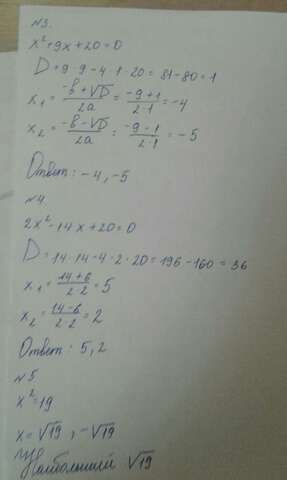 №3.
x²+9x+20=0
D=9·9-4·1·20=81-80=1
x₁=(-b+√D)/2a=(-9+1)/2·1=-4
x₂=(-b-√D)/2a=(-9-1)/2·1=-5
Ответ: -4,-5
№4
2x²-14x+20=0
D=14·14-4·2·20=196-160=36
x₁=(14+6)/2·2=5
x₂=(14-6)/2·2=2
Ответ: 5,2
№5
x²=19
x=√19, -√19
Наибольший √19